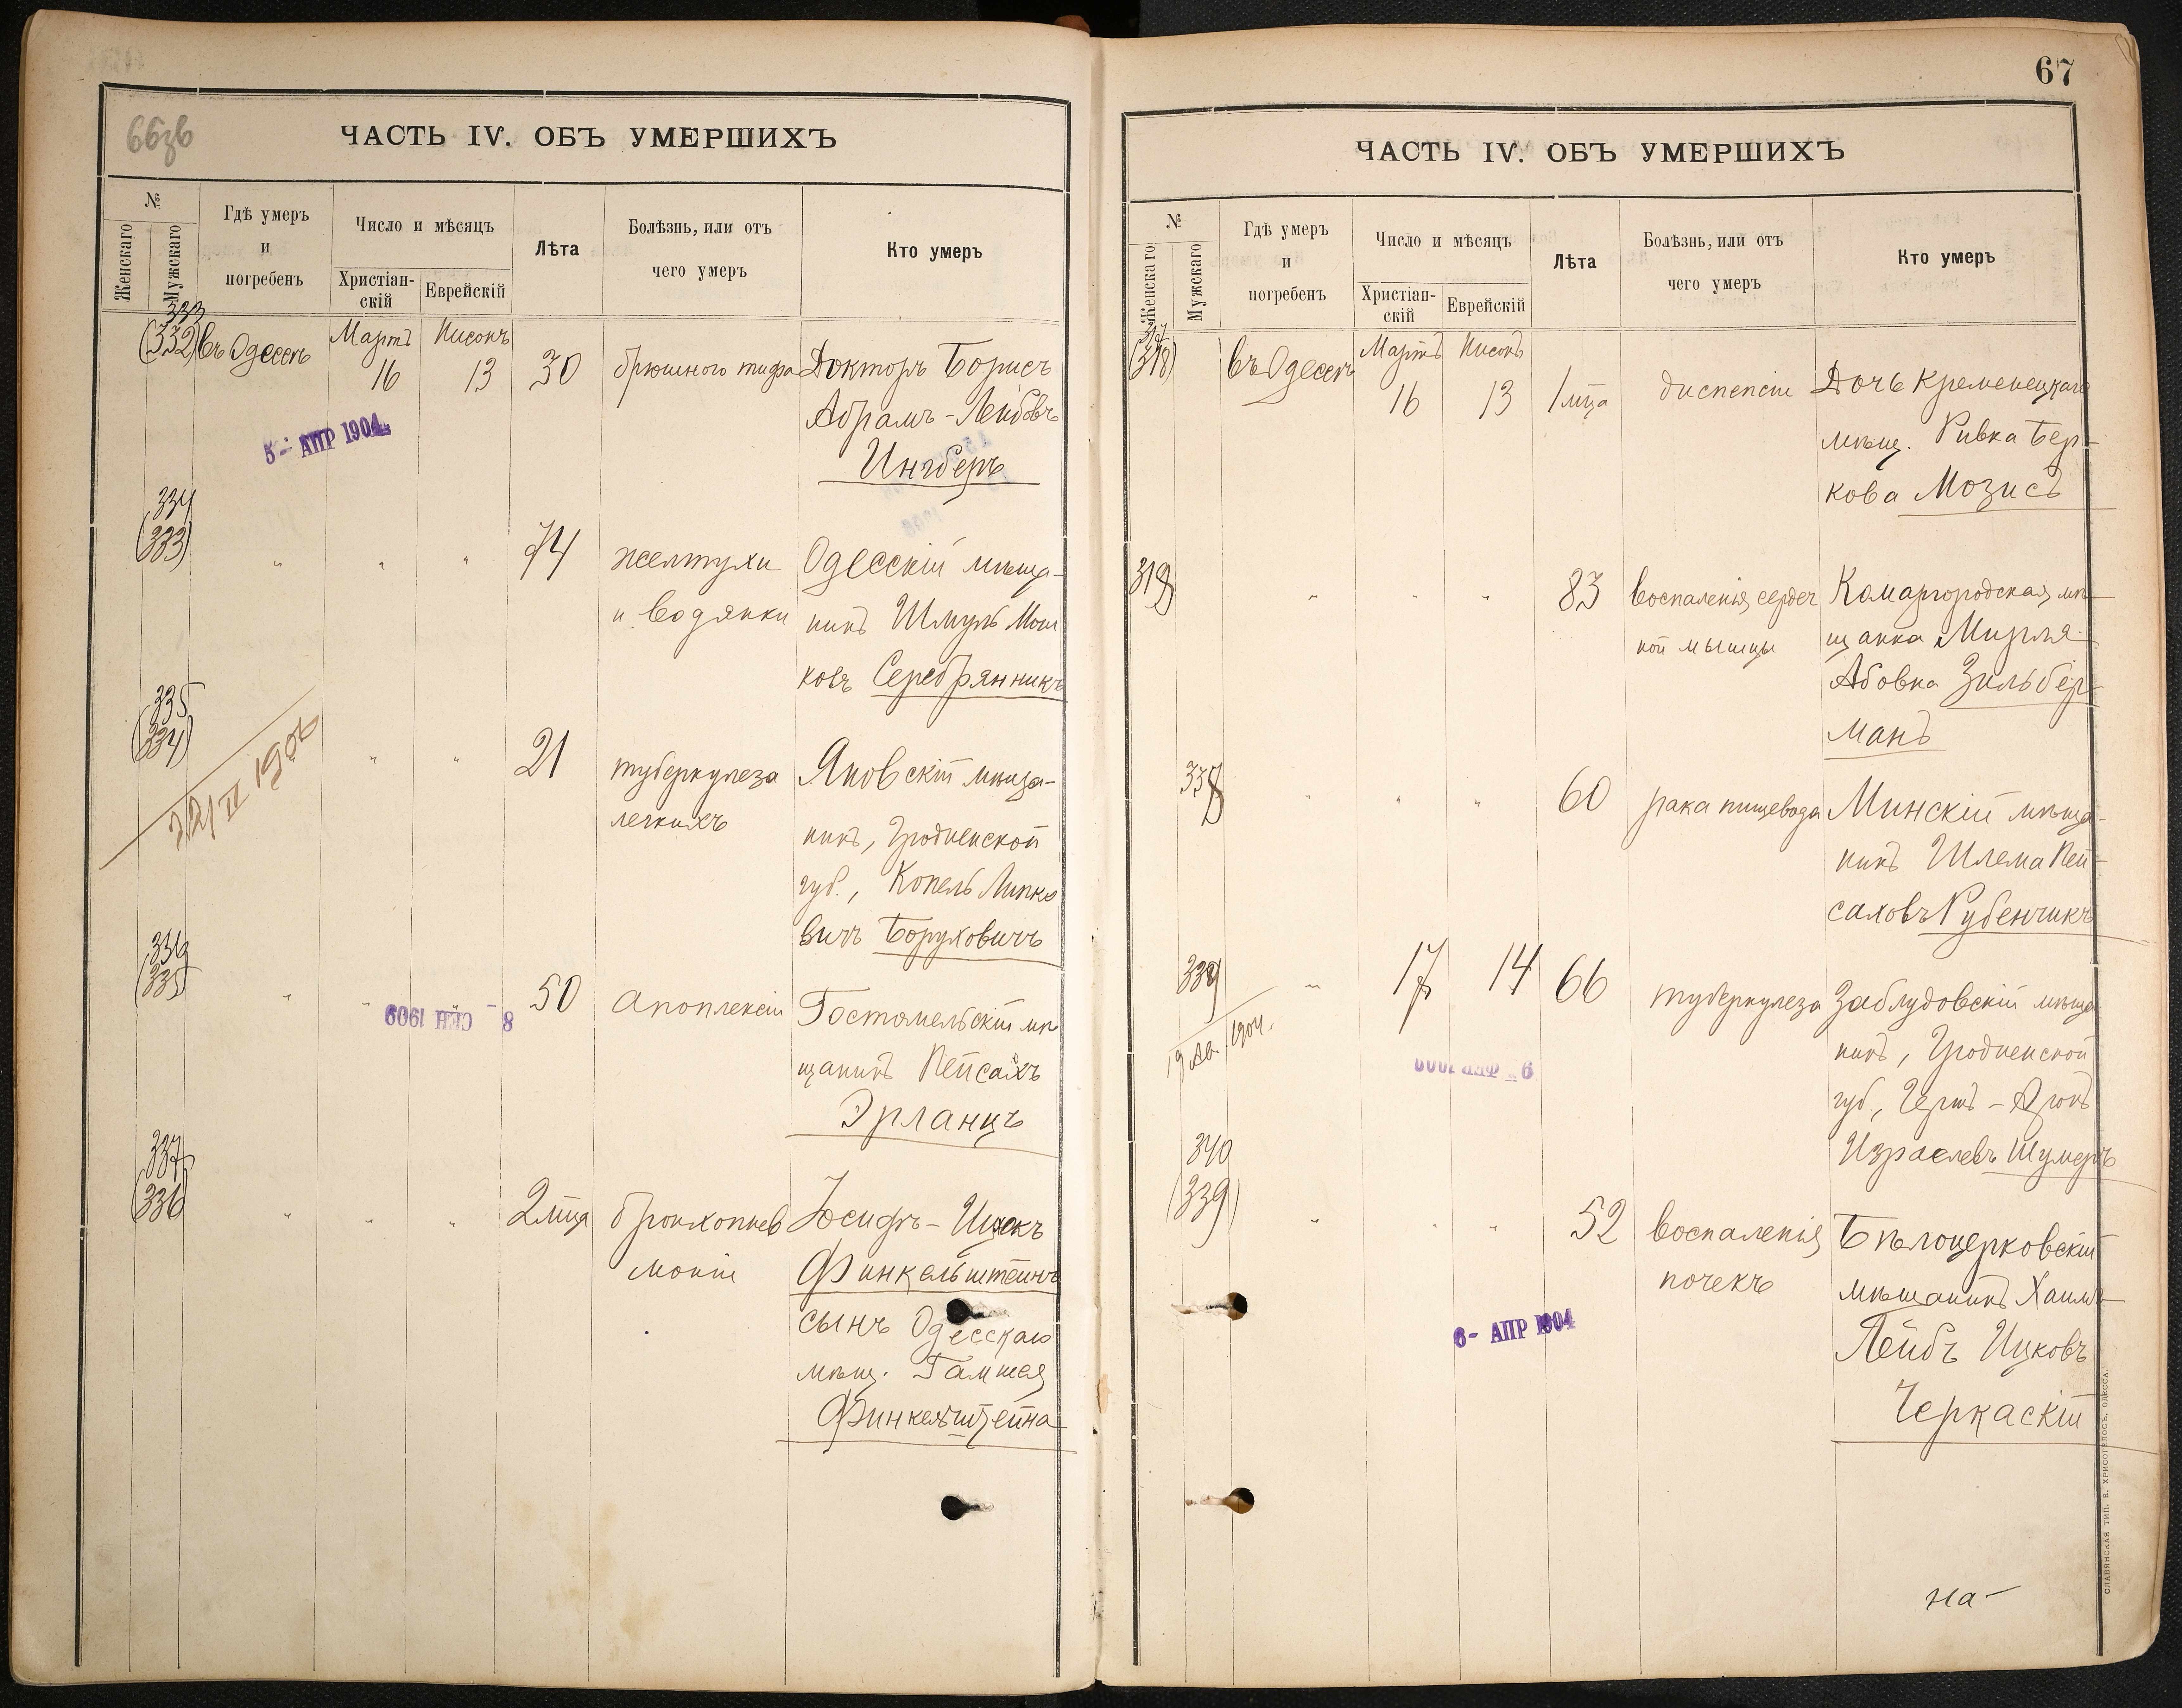 66зв
ЧАСТЬ IV. ОБЪ УМЕРШИХЪ
№
Женскаго
Мужскаго
Гдѣ умеръ
и
погребенъ
Число и мѣсяцъ
Христіан-
скій
Еврейскій
Лѣта
Болѣзнь, или отъ
чего умеръ
Кто умеръ
333
(332) въ Одессѣ Мартъ 16 Нисонъ 13 30 брюшного тифа Докторъ Борисъ
Абрамъ-Лейбовъ
Ингберъ
5- АПР 1904
334
(333) " " " 74 желтухи Одесскій мѣща-
и водянки нинъ Шмуль Мош
ковъ Серебрянникъ
335
(334) " " 21 туберкулеза Яновскій мѣща-
легкихъ
нинъ, Гродненской
губ., Копель Липко
вичъ Боруховичъ
22/II 1906
336
(335) " " 50 апоплексіи Гостомельскій мѣ
щанинъ Пейсахъ
Эрланцъ
8 - СЕН 1909
337
(336) " " " 2 мца бронхопнев Іосифъ-Ицекъ
моніи Финкельштейнъ
сынъ Одесскаго
мѣщ. Гамшея
Финкельштейна
67
ЧАСТЬ IV. ОБЪ УМЕРШИХЪ
№
Женскаго
Мужскаго
Гдѣ умеръ
и
погребенъ
Число и мѣсяцъ
Христіан-
скій
Еврейскій
Лѣта
Болѣзнь, или отъ
чего умеръ
Кто умеръ
317
(318) въ Одессѣ Мартъ 16 Нисонъ 13 1 мца диспепсіи Дочь Кременецкаго
мѣщ. Ривка Бер-
кова Мозисъ
318 " " " 83 воспаленія сердеч Комаргородская мѣ-
ной мышцы щанка Мирля
Абовна Зильбер-
манъ
338 " " " 60 рака пищевода Минскій мѣща-
нинъ Шлема Пей-
саховъ Рубенчикъ
339 " 17 14 66 туберкулеза Заблудовскій мѣща
нинъ, Гродненской
губ., Гершъ-Аронъ
Израелевъ Шумеръ
340
(339) " " " 52 воспаленія Бѣлоцерковскій
почекъ мѣщанинъ Хаимъ-
Лейбъ Ицковъ
Черкаскій
6- АПР 1904
на-
СЛАВЯНСКАЯ ТИП. Е. ХРИСОГЕЛОСЪ, ОДЕССА.